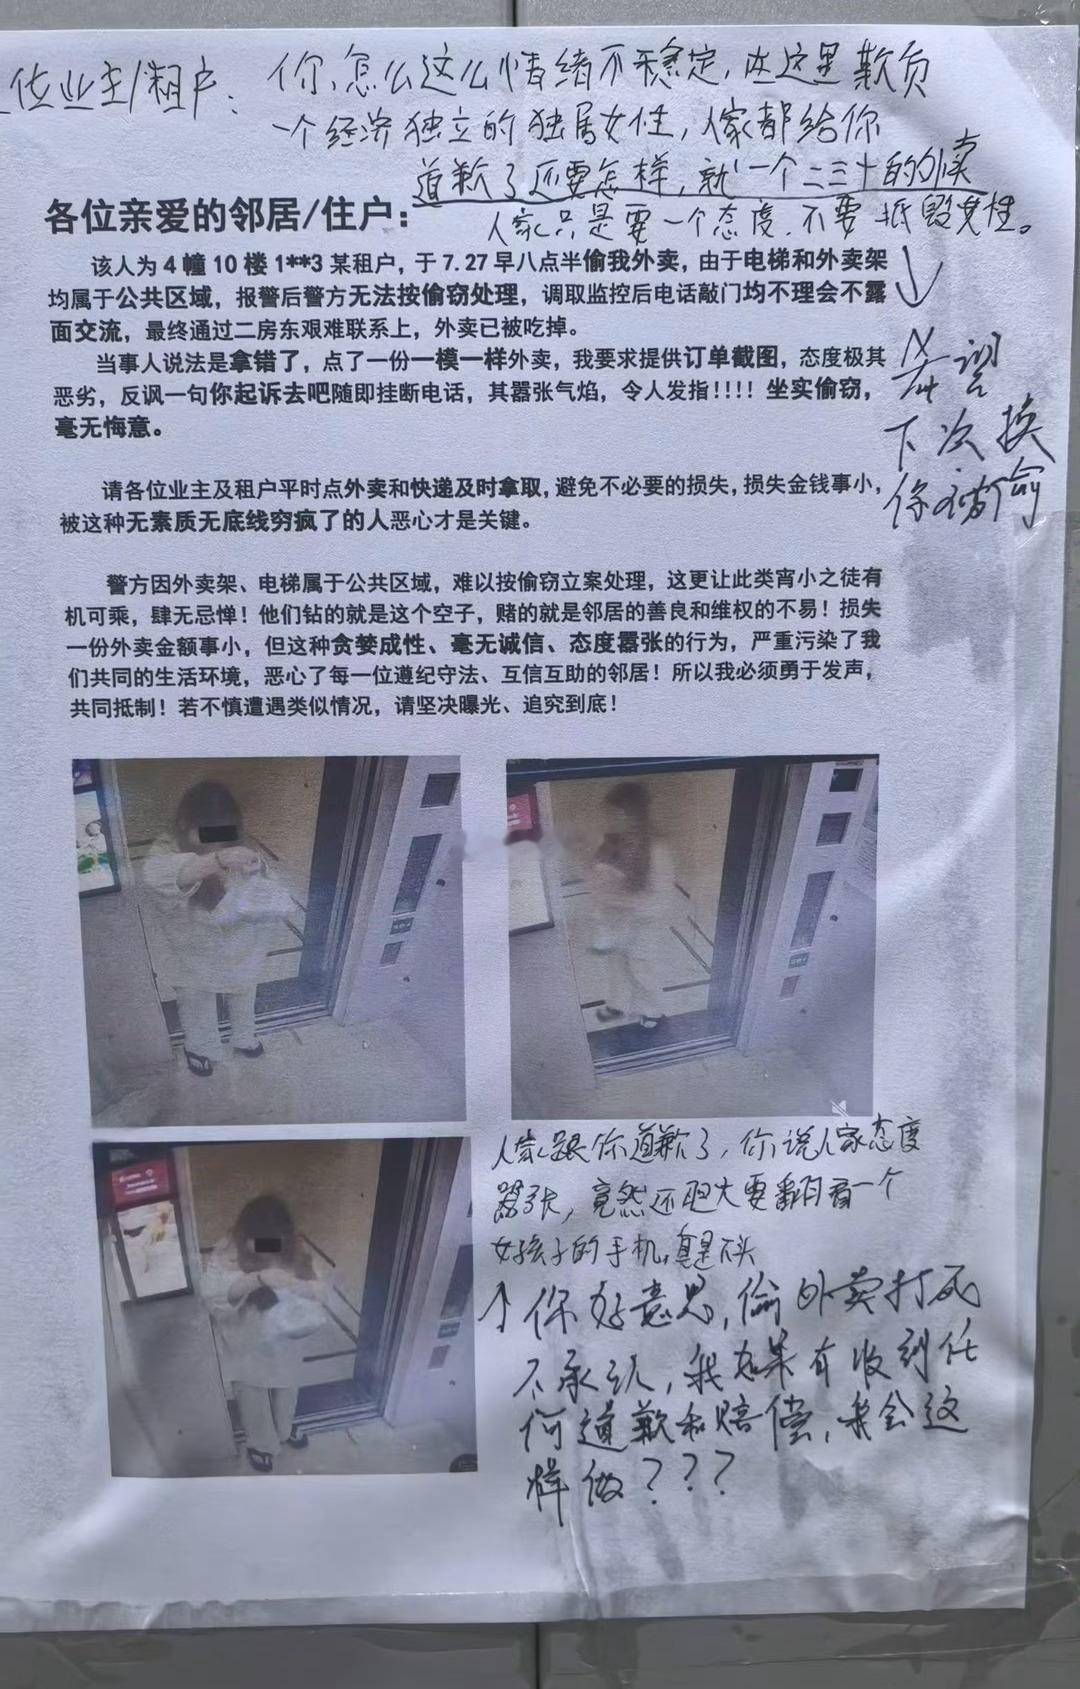 位业主/租户：你怎么这么情绪不稳定，在这里欺负
一个经济独立的独居女性，人家都给你
道歉了还要怎样，就一个二三十的外卖
人家只是要一个态度.不要抵毁女性。
各位亲爱的邻居/住户：
该人为4幢10楼1**3某租户，于7.27早八点半偷我外卖，由于电梯和外卖架
均属于公共区域，报警后警方无法按偷窃处理，调取监控后电话敲门均不理会不露
面交流，最终通过二房东艰难联系上，外卖已被吃掉。
当事人说法是拿错了，点了一份一模一样外卖，我要求提供订单截图，态度极其
恶劣，反讽一句你起诉去吧随即挂断电话，其嚣张气焰，令人发指!!!!坐实偷窃，
毫无悔意。
希望
下次换
你被偷
请各位业主及租户平时点外卖和快递及时拿取，避免不必要的损失，损失金钱事小，
被这种无素质无底线穷疯了的人恶心才是关键。
警方因外卖架、电梯属于公共区域，难以按偷窃立案处理，这更让此类宵小之徒有
机可乘，肆无忌惮！他们钻的就是这个空子，赌的就是邻居的善良和维权的不易！损失
一份外卖金额事小，但这种贪婪成性、毫无诚信、态度嚣张的行为，严重污染了我
们共同的生活环境，恶心了每一位遵纪守法、互信互助的邻居！所以我必须勇于发声，
共同抵制！若不慎遭遇类似情况，请坚决曝光、追究到底！
人家跟你道歉了，你说人家态度
嚣张，竟然还胆大要翻看一个
女孩子的手机，真是
你好意思，偷外卖打死
不承认，我如果有收到任
何道歉和赔偿，我会这
样做？？？